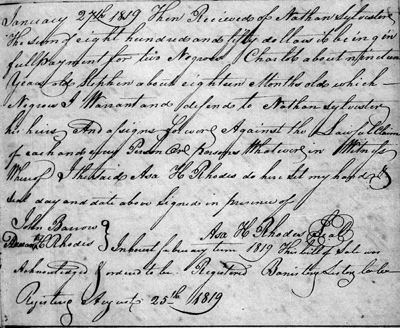 January 27th 1819 Then Recieved of Nathan Sylvester
The sum of eight hundred and fifty dollars it being in
full Payment for two Negroes Charlot about nineteen
Years old Stephen about eighteen Months old which
Negroes I Warrant and defend to Nathan Sylvester
his heirs And assigns forever Against the Lawful Claim
of each and every Person Or Persons Whatever in Witness
Whereof I the said Asa H Rhodes do here set my hand &
seal day and date above Signed in presence of
John Barrow
Rhodes } Asa H Rhodes Seal
In hevert february term 1819 This bill of Sale was
Acknowledged & ordered to be Registered
Registered August 25th 1819